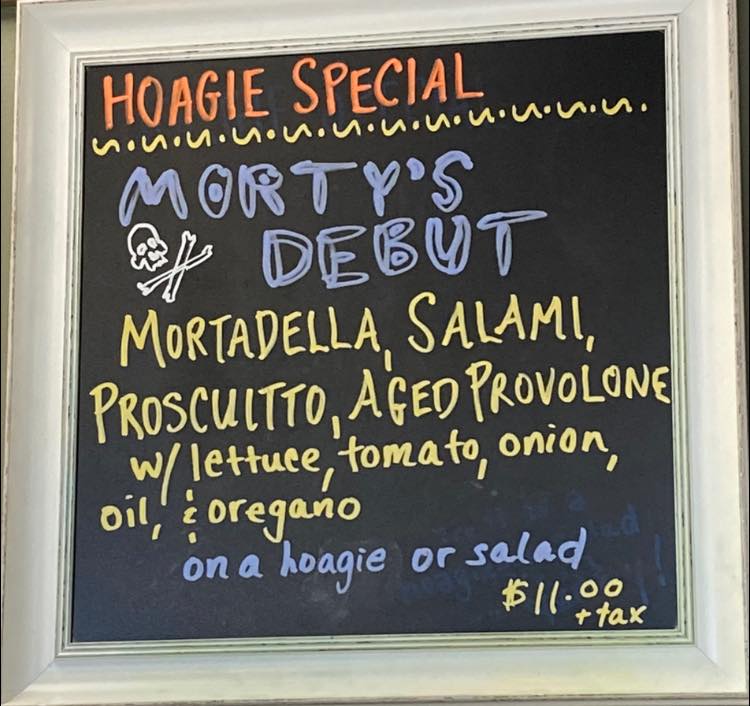 HOAGIE SPECIAL
MORTY'S
DEBUT
MORTADELLA, SALAMI,
PROSCUITTO, AGED PROVOLONE
w/ lettuce, tomato, onion,
oil, & oregano
on a hoagie or salad
$11.00
+tax